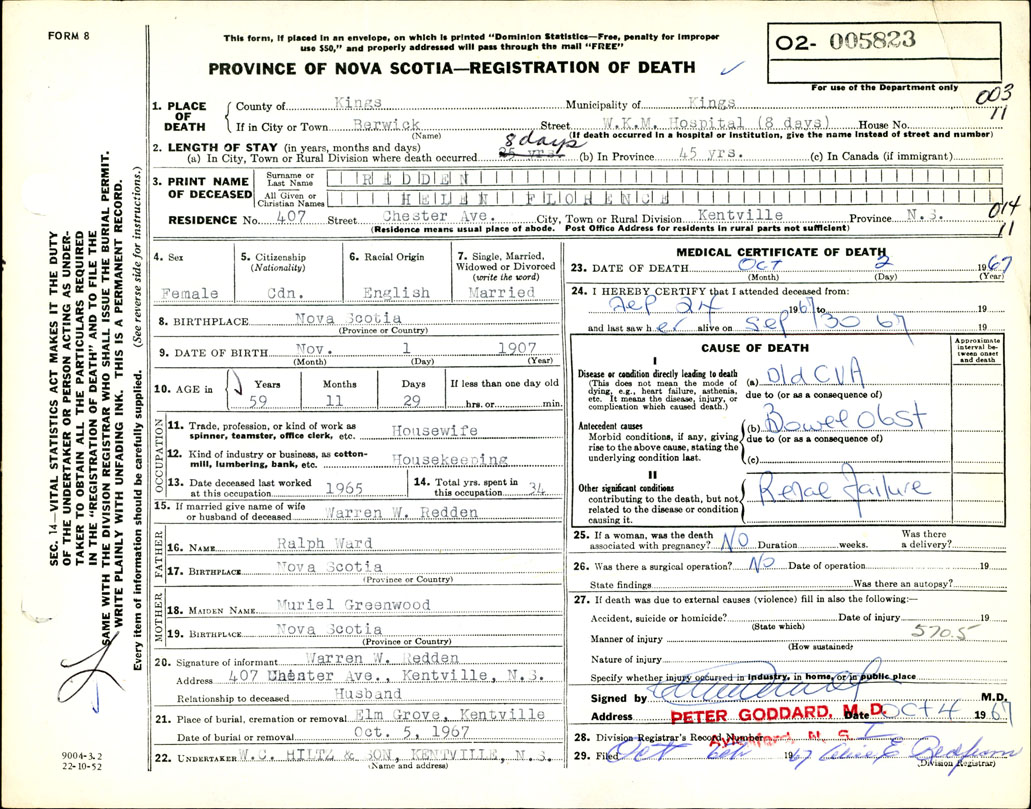 FORM 8
This form, if placed in an envelope, on which is printed "Dominion Statistics—Free, penalty for improper
use $50," and properly addressed will pass through the mail "FREE"
02- 005823
PROVINCE OF NOVA SCOTIA—REGISTRATION OF DEATH
For use of the Department only
003
11
1. PLACE OF DEATH
County of Kings Municipality of Kings
If in City or Town Berwick Street W.K.M. Hospital (8 days) House No.
(Name) (If death occurred in a hospital or institution, give the name instead of street and number)
2. LENGTH OF STAY (in years, months and days)
8 days
(a) In City, Town or Rural Division where death occurred 25 yrs. (b) In Province 45 yrs. (c) In Canada (if immigrant)
3. PRINT NAME OF DECEASED
Surname or Last Name REDDEN
All Given or Christian Names HELEN FLORENCE
014
11
RESIDENCE No. 407 Street Chester Ave. City, Town or Rural Division Kentville Province N.S.
(Residence means usual place of abode. Post Office Address for residents in rural parts not sufficient)
4. Sex
Female
5. Citizenship (Nationality)
Cdn.
6. Racial Origin
English
7. Single, Married, Widowed or Divorced (write the word)
Married
8. BIRTHPLACE Nova Scotia
(Province or Country)
9. DATE OF BIRTH Nov. 1 1907
(Month) (Day) (Year)
10. AGE in Years Months Days If less than one day old
59 11 29 hrs. or min.
OCCUPATION
11. Trade, profession, or kind of work as spinner, teamster, office clerk, etc. Housewife
12. Kind of industry or business, as cotton-mill, lumbering, bank, etc. Housekeeping
13. Date deceased last worked at this occupation 1965
14. Total yrs. spent in this occupation 34
15. If married give name of wife or husband of deceased Warren W. Redden
FATHER
16. NAME Ralph Ward
17. BIRTHPLACE Nova Scotia
(Province or Country)
MOTHER
18. MAIDEN NAME Muriel Greenwood
19. BIRTHPLACE Nova Scotia
(Province or Country)
20. Signature of informant Warren W. Redden
Address 407 Chester Ave., Kentville, N.S.
Relationship to deceased Husband
21. Place of burial, cremation or removal Elm Grove, Kentville
Date of burial or removal Oct. 5, 1967
22. UNDERTAKER W.C. HILTZ & SON, KENTVILLE, N.S.
(Name and address)
MEDICAL CERTIFICATE OF DEATH
23. DATE OF DEATH Oct 2 1967
(Month) (Day) (Year)
24. I HEREBY CERTIFY that I attended deceased from:
Sep 24 1967 to 19
and last saw her alive on Sep 30 67 19
CAUSE OF DEATH
Approximate interval between onset and death
I
Disease or condition directly leading to death
(This does not mean the mode of dying, e.g., heart failure, asthenia, etc. It means the disease, injury, or complication which caused death.)
(a) Old CVA
due to (or as a consequence of)
Antecedent causes
Morbid conditions, if any, giving rise to the above cause, stating the underlying condition last.
(b) Bowel Obst
due to (or as a consequence of)
(c)
II
Other significant conditions
contributing to the death, but not related to the disease or condition causing it.
Renal failure
25. If a woman, was the death associated with pregnancy? NO Duration weeks. Was there a delivery?
26. Was there a surgical operation? NO Date of operation 19
State findings Was there an autopsy?
27. If death was due to external causes (violence) fill in also the following:—
Accident, suicide or homicide? Date of injury 19
(State which)
570.5
Manner of injury
(How sustained)
Nature of injury
Specify whether injury occurred in industry, in home, or in public place
Signed by M.D.
Address PETER GODDARD, M.D. Date Oct 4 1967
28. Division Registrar's Record Number
N. S.
29. Filed Oct 1967
(Division Registrar)
SEC. 14—VITAL STATISTICS ACT MAKES IT THE DUTY
OF THE UNDERTAKER OR PERSON ACTING AS UNDER-
TAKER TO OBTAIN ALL THE PARTICULARS REQUIRED
IN THE "REGISTRATION OF DEATH" AND TO FILE THE
SAME WITH THE DIVISION REGISTRAR WHO SHALL ISSUE THE BURIAL PERMIT.
WRITE PLAINLY WITH UNFADING INK. THIS IS A PERMANENT RECORD.
Every item of information should be carefully supplied. (See reverse side for instructions.)
9004-3.2
22-10-52